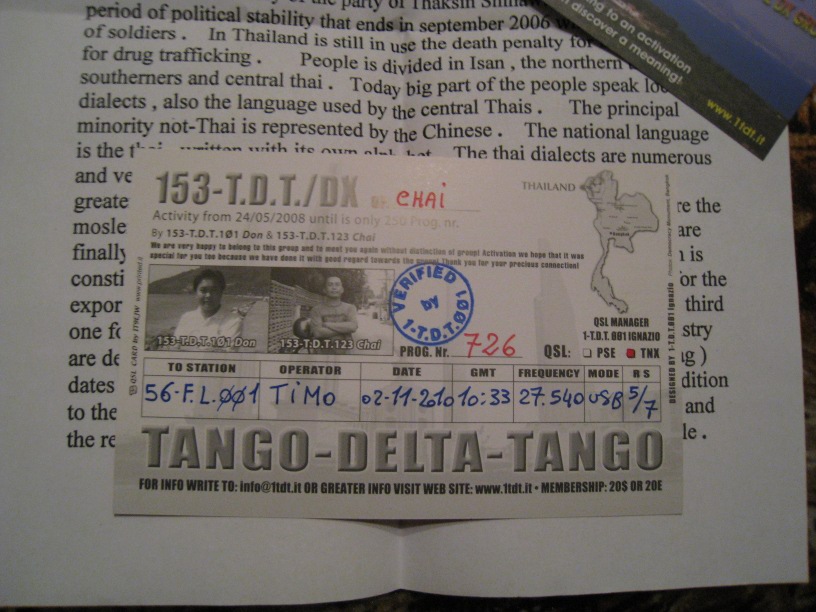 period of political stability that ends in september 2006
of soldiers . In Thailand is still in use the death penalty for
for drug trafficking . People is divided in Isan , the northern
southerners and central thai . Today big part of the people speak
dialects , also the language used by the central Thais . The principal
minority not-Thai is represented by the Chinese . The national language
is the written with its own The thai dialects are numerous
and
greate
mosle
finally
consti
expor
one
are de
dates
to the
the re
re the
are
is
for the
third
stry
ag )
dition
and
le .
to an activation
discover a meaning!
www.1tdt.it
153-T.D.T./DX OP. CHAi
THAILAND
Activity from 24/05/2008 until is only 250 Prog. nr.
By 153-T.D.T.1Ø1 Don & 153-T.D.T.123 Chai
We are very happy to belong to this group and to meet you again without distinction of group! Activation we hope that it was
special for you too because we have done it with good regard towards the group! Thank you for your precious connection!
153-T.D.T.1Ø1 Don
153-T.D.T.123 Chai
VERIFIED
BY
1-T.D.T.001
PROG. Nr. 726
QSL MANAGER
1-T.D.T. 001 IGNAZIO
QSL: PSE TNX
QSL CARD by IT9EJW www.printed.it
DESIGNED BY 1-T.D.T.001 Ignazio
TO STATION OPERATOR DATE GMT FREQUENCY MODE R S
56-F.L.ØØ1 TiMO 02-11-2010 10:33 27.540 USB 5/7
TANGO-DELTA-TANGO
FOR INFO WRITE TO: info@1tdt.it OR GREATER INFO VISIT WEB SITE: www.1tdt.it • MEMBERSHIP: 20$ OR 20E